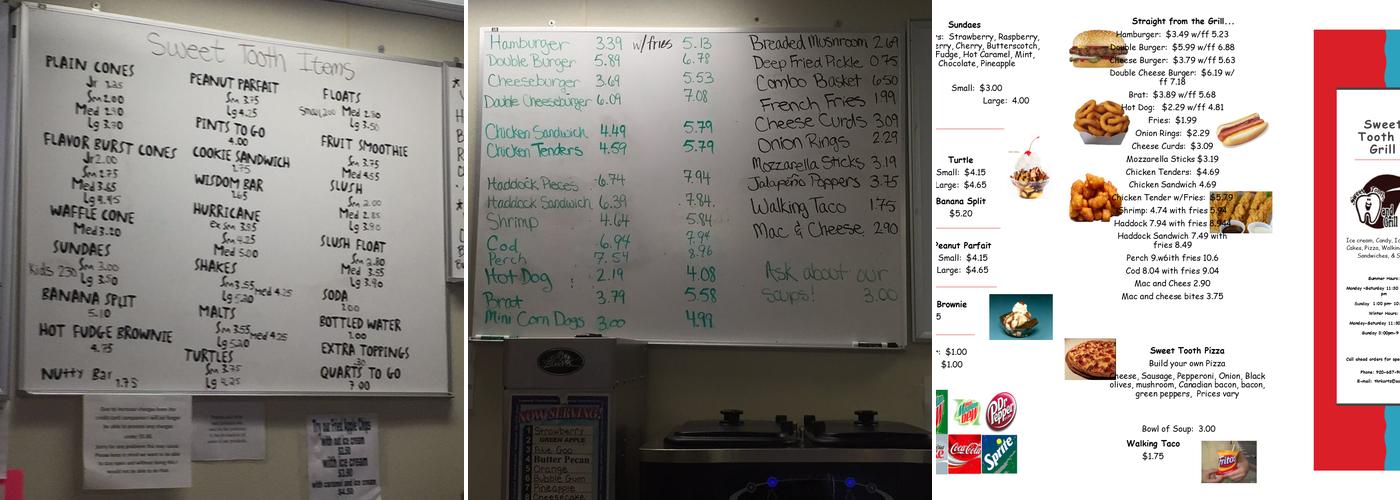 Sweet Tooth Items
PLAIN CONES
Jr 1.25
Sm 2.00
Med 2.90
Lg 3.70
FLAVOR BURST CONES
Jr 2.00
Sm 2.75
Med 3.65
Lg 4.45
WAFFLE CONE
Med 3.20
SUNDAES
Kids 2.30 Sm 3.00
Lg 3.50
BANANA SPLIT
5.10
HOT FUDGE BROWNIE
4.75
Nutty Bar 1.75
PEANUT PARFAIT
Sm 3.75
Lg 4.25
PINTS TO GO
4.00
COOKIE SANDWICH
1.75
WISDOM BAR
2.65
HURRICANE
ex Sm 3.55
Sm 4.25
Med 5.00
SHAKES
Sm 3.55 med 4.25
Lg 5.20
MALTS
Sm 3.55 med 4.25
Lg 5.20
TURTLES
Sm 3.75
Lg 4.25
FLOATS
Small 2.00 Med 2.50
Lg 3.50
FRUIT SMOOTHIE
Sm 3.75
Med 4.55
SLUSH
Sm 2.00
Med 2.85
Lg 3.90
SLUSH FLOAT
Sm 2.80
Med 3.55
Lg 3.90
SODA
2.00
BOTTLED WATER
1.00
EXTRA TOPPINGS
.30
QUARTS TO GO
7.00
Try our fried Apple Chips
with out ice cream
$2.50
with ice cream
$3.50
with caramel and ice cream
$4.50
Hamburger 3.39 w/fries 5.13
Double Burger 5.89 6.78
Cheeseburger 3.69 5.53
Double Cheeseburger 6.09 7.08
Chicken Sandwich 4.49 5.79
Chicken Tenders 4.59 5.79
Haddock Pieces 6.74 7.94
Haddock Sandwich 6.39 7.84
Shrimp 4.64 5.84
Cod 6.94 7.94
Perch 7.54 8.96
Hot Dog 2.19 4.08
Brat 3.79 5.58
Mini Corn Dogs 3.00 4.99
Breaded Mushroom 2.69
Deep Fried Pickle 0.75
Combo Basket 6.50
French Fries 1.99
Cheese Curds 3.09
Onion Rings 2.29
Mozzarella Sticks 3.19
Jalapeño Poppers 3.75
Walking Taco 1.75
Mac & Cheese 2.90
Ask about our
Soups! 3.00
NOW SERVING!
1 Strawberry
2 GREEN APPLE
3 Blue Goo
4 Butter Pecan
5 Orange
6 Bubble Gum
7 Pineapple
8 Cheesecake
Sundaes
Strawberry, Raspberry,
Cherry, Butterscotch,
Fudge, Hot Caramel, Mint,
Chocolate, Pineapple
Small: $3.00
Large: 4.00
Turtle
Small: $4.15
Large: $4.65
Banana Split
$5.20
Peanut Parfait
Small: $4.15
Large: $4.65
Brownie
5
$1.00
$1.00
Mtn Dew
Dr Pepper
Coca-Cola
Sprite
Straight from the Grill...
Hamburger: $3.49 w/ff 5.23
Double Burger: $5.99 w/ff 6.88
Cheese Burger: $3.79 w/ff 5.63
Double Cheese Burger: $6.19 w/
ff 7.18
Brat: $3.89 w/ff 5.68
Hot Dog: $2.29 w/ff 4.81
Fries: $1.99
Onion Rings: $2.29
Cheese Curds: $3.09
Mozzarella Sticks $3.19
Chicken Tenders: $4.69
Chicken Sandwich 4.69
Chicken Tender w/Fries: $5.79
Shrimp: 4.74 with fries 5.94
Haddock 7.94 with fries 8.944
Haddock Sandwich 7.49 with
fries 8.49
Perch 9.w6ith fries 10.6
Cod 8.04 with fries 9.04
Mac and Chees 2.90
Mac and cheese bites 3.75
Sweet Tooth Pizza
Build your own Pizza
Cheese, Sausage, Pepperoni, Onion, Black
olives, mushroom, Canadian bacon, bacon,
green peppers, Prices vary
Bowl of Soup: 3.00
Walking Taco
$1.75
Fritos
Sweet
Tooth
Grill
and
Grill
Ice cream, Candy,
Cakes, Pizza,
Sandwiches, &
Summer Hours:
Monday-Saturday 11:30
pm
Sunday 1:00 pm- 10:
Winter Hours:
Monday-Saturday 11:30
Sunday 3:00pm-9
Call ahead orders for
Phone: 920-687-9
E-mail: